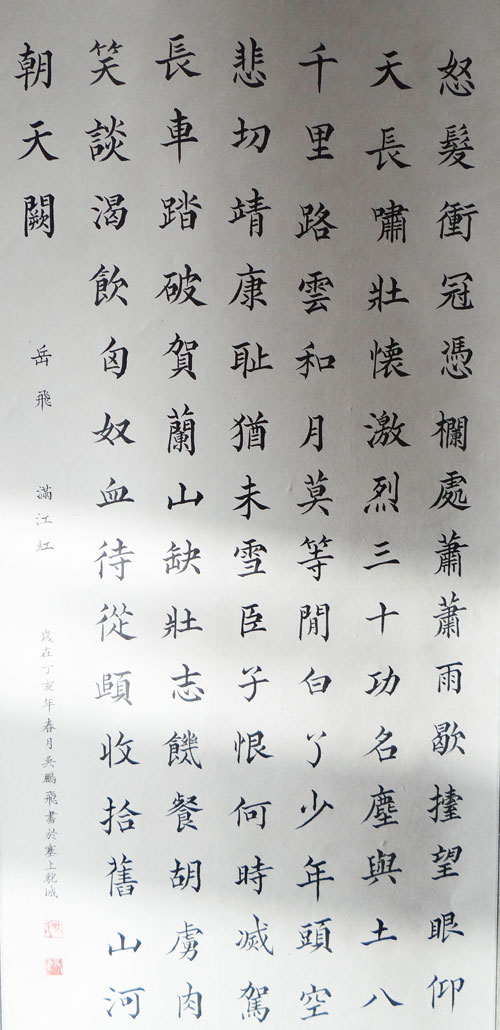 怒髮衝冠憑欄處蕭蕭雨歇擡望眼仰
天長嘯壯懷激烈三十功名塵與土八
千里路雲和月莫等閒白了少年頭空
悲切靖康耻猶未雪臣子恨何時滅駕
長車踏破賀蘭山缺壯志饑餐胡虜肉
笑談渴飲匈奴血待從頤收拾舊山河
朝天闕
岳飛 滿江紅
歲在丁亥年春月吳鵬飛書於塞上駝城